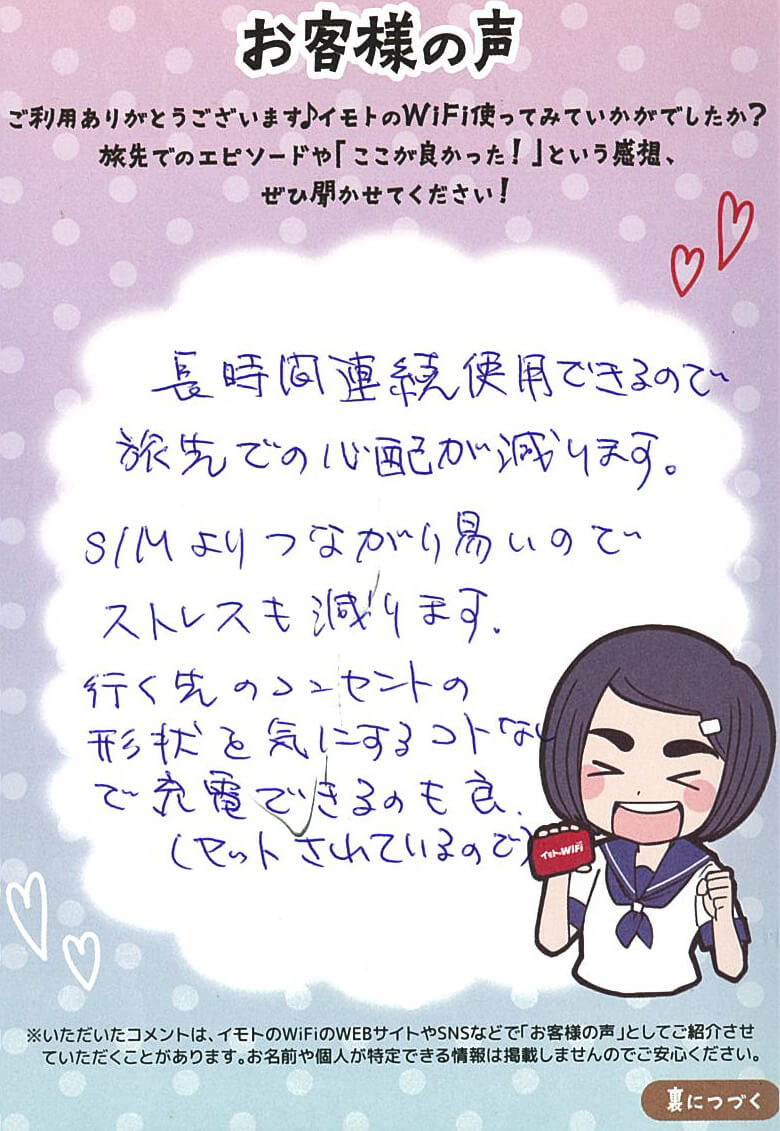 お客様の声
ご利用ありがとうございます♪イモトのWiFi使ってみていかがでしたか?
旅先でのエピソードや「ここが良かった!」という感想、
ぜひ聞かせてください!
長時間連続使用できるので
旅先での心配が減ります。
SIMよりつながり易いので
ストレスも減ります.
行く先のコンセントの
形状を気にするコトなし
で充電できるのも良.
(セットされているので)
イモトのWiFi
※いただいたコメントは、イモトのWiFiのWEBサイトやSNSなどで「お客様の声」としてご紹介させ
ていただくことがあります。お名前や個人が特定できる情報は掲載しませんのでご安心ください。
裏につづく